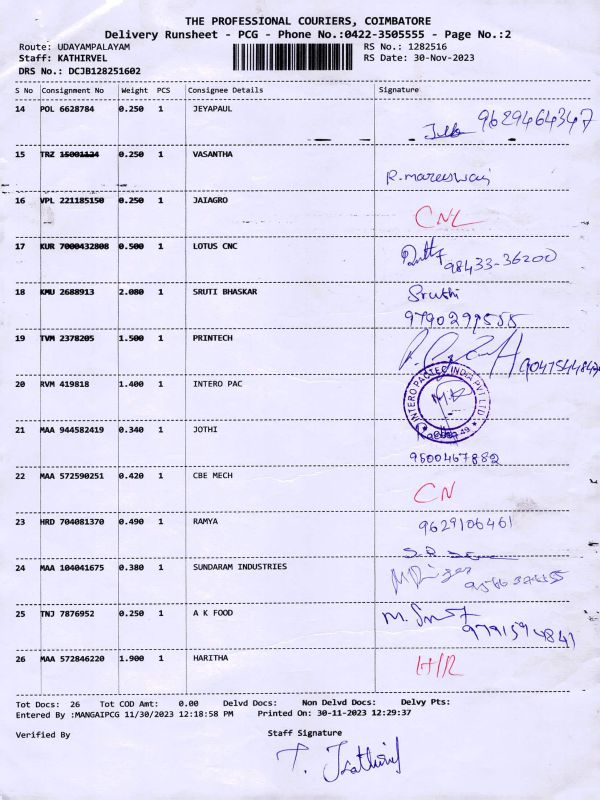 THE PROFESSIONAL COURIERS, COIMBATORE
Delivery Runsheet - PCG - Phone No.:0422-3505555 - Page No.:2
Route: UDAYAMPALAYAM RS No.: 1282516
Staff: KATHIRVEL RS Date: 30-Nov-2023
DRS No.: DCJB128251602
S No Consignment No Weight PCS Consignee Details Signature
14 POL 6628784 0.250 1 JEYAPAUL 9629464347
15 TRZ 15001124 0.250 1 VASANTHA R. mareeswari
16 VPL 221185150 0.250 1 JAIAGRO CNL
17 KUR 7000432808 0.500 1 LOTUS CNC 98433-36200
18 KMU 2688913 2.080 1 SRUTI BHASKAR Sruthi
9790299555
19 TVM 2378205 1.500 1 PRINTECH
20 RVM 419818 1.400 1 INTERO PAC INTERO PACTEC INDIA PVT LTD
21 MAA 944582419 0.340 1 JOTHI
9500467882
22 MAA 572590251 0.420 1 CBE MECH CN
23 HRD 704081370 0.490 1 RAMYA 9629106461
24 MAA 104041675 0.380 1 SUNDARAM INDUSTRIES
25 TNJ 7876952 0.250 1 A K FOOD
26 MAA 572846220 1.900 1 HARITHA H/R
Tot Docs: 26 Tot COD Amt: 0.00 Delvd Docs: Non Delvd Docs: Delvy Pts:
Entered By :MANGAIPCG 11/30/2023 12:18:58 PM Printed On: 30-11-2023 12:29:37
Verified By Staff Signature